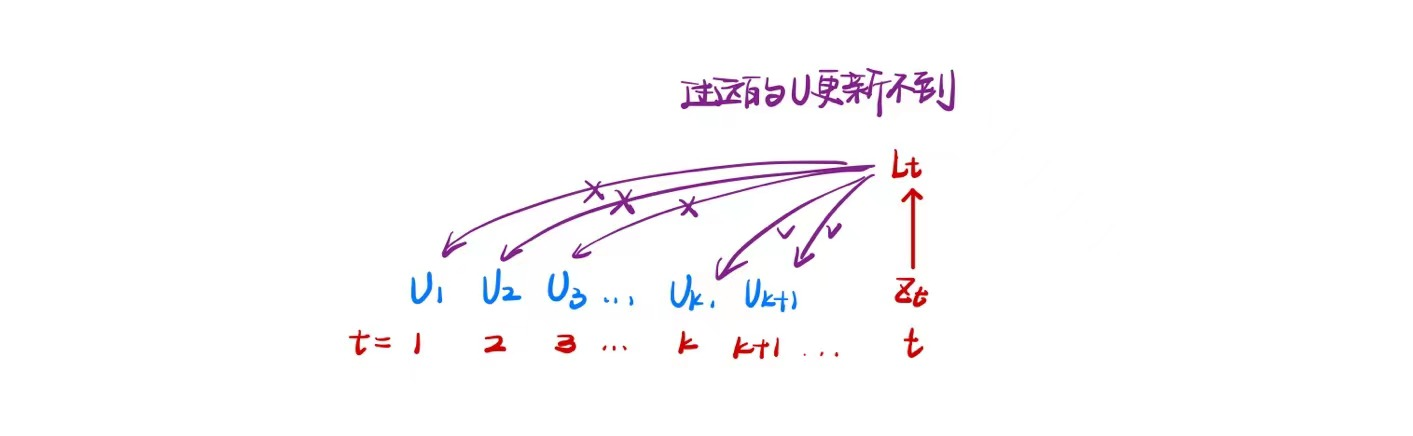 过远的U更新不到
Lt
U1 U2 U3 ... Uk, Uk+1 Zt
t= 1 2 3 ... k k+1 ... t